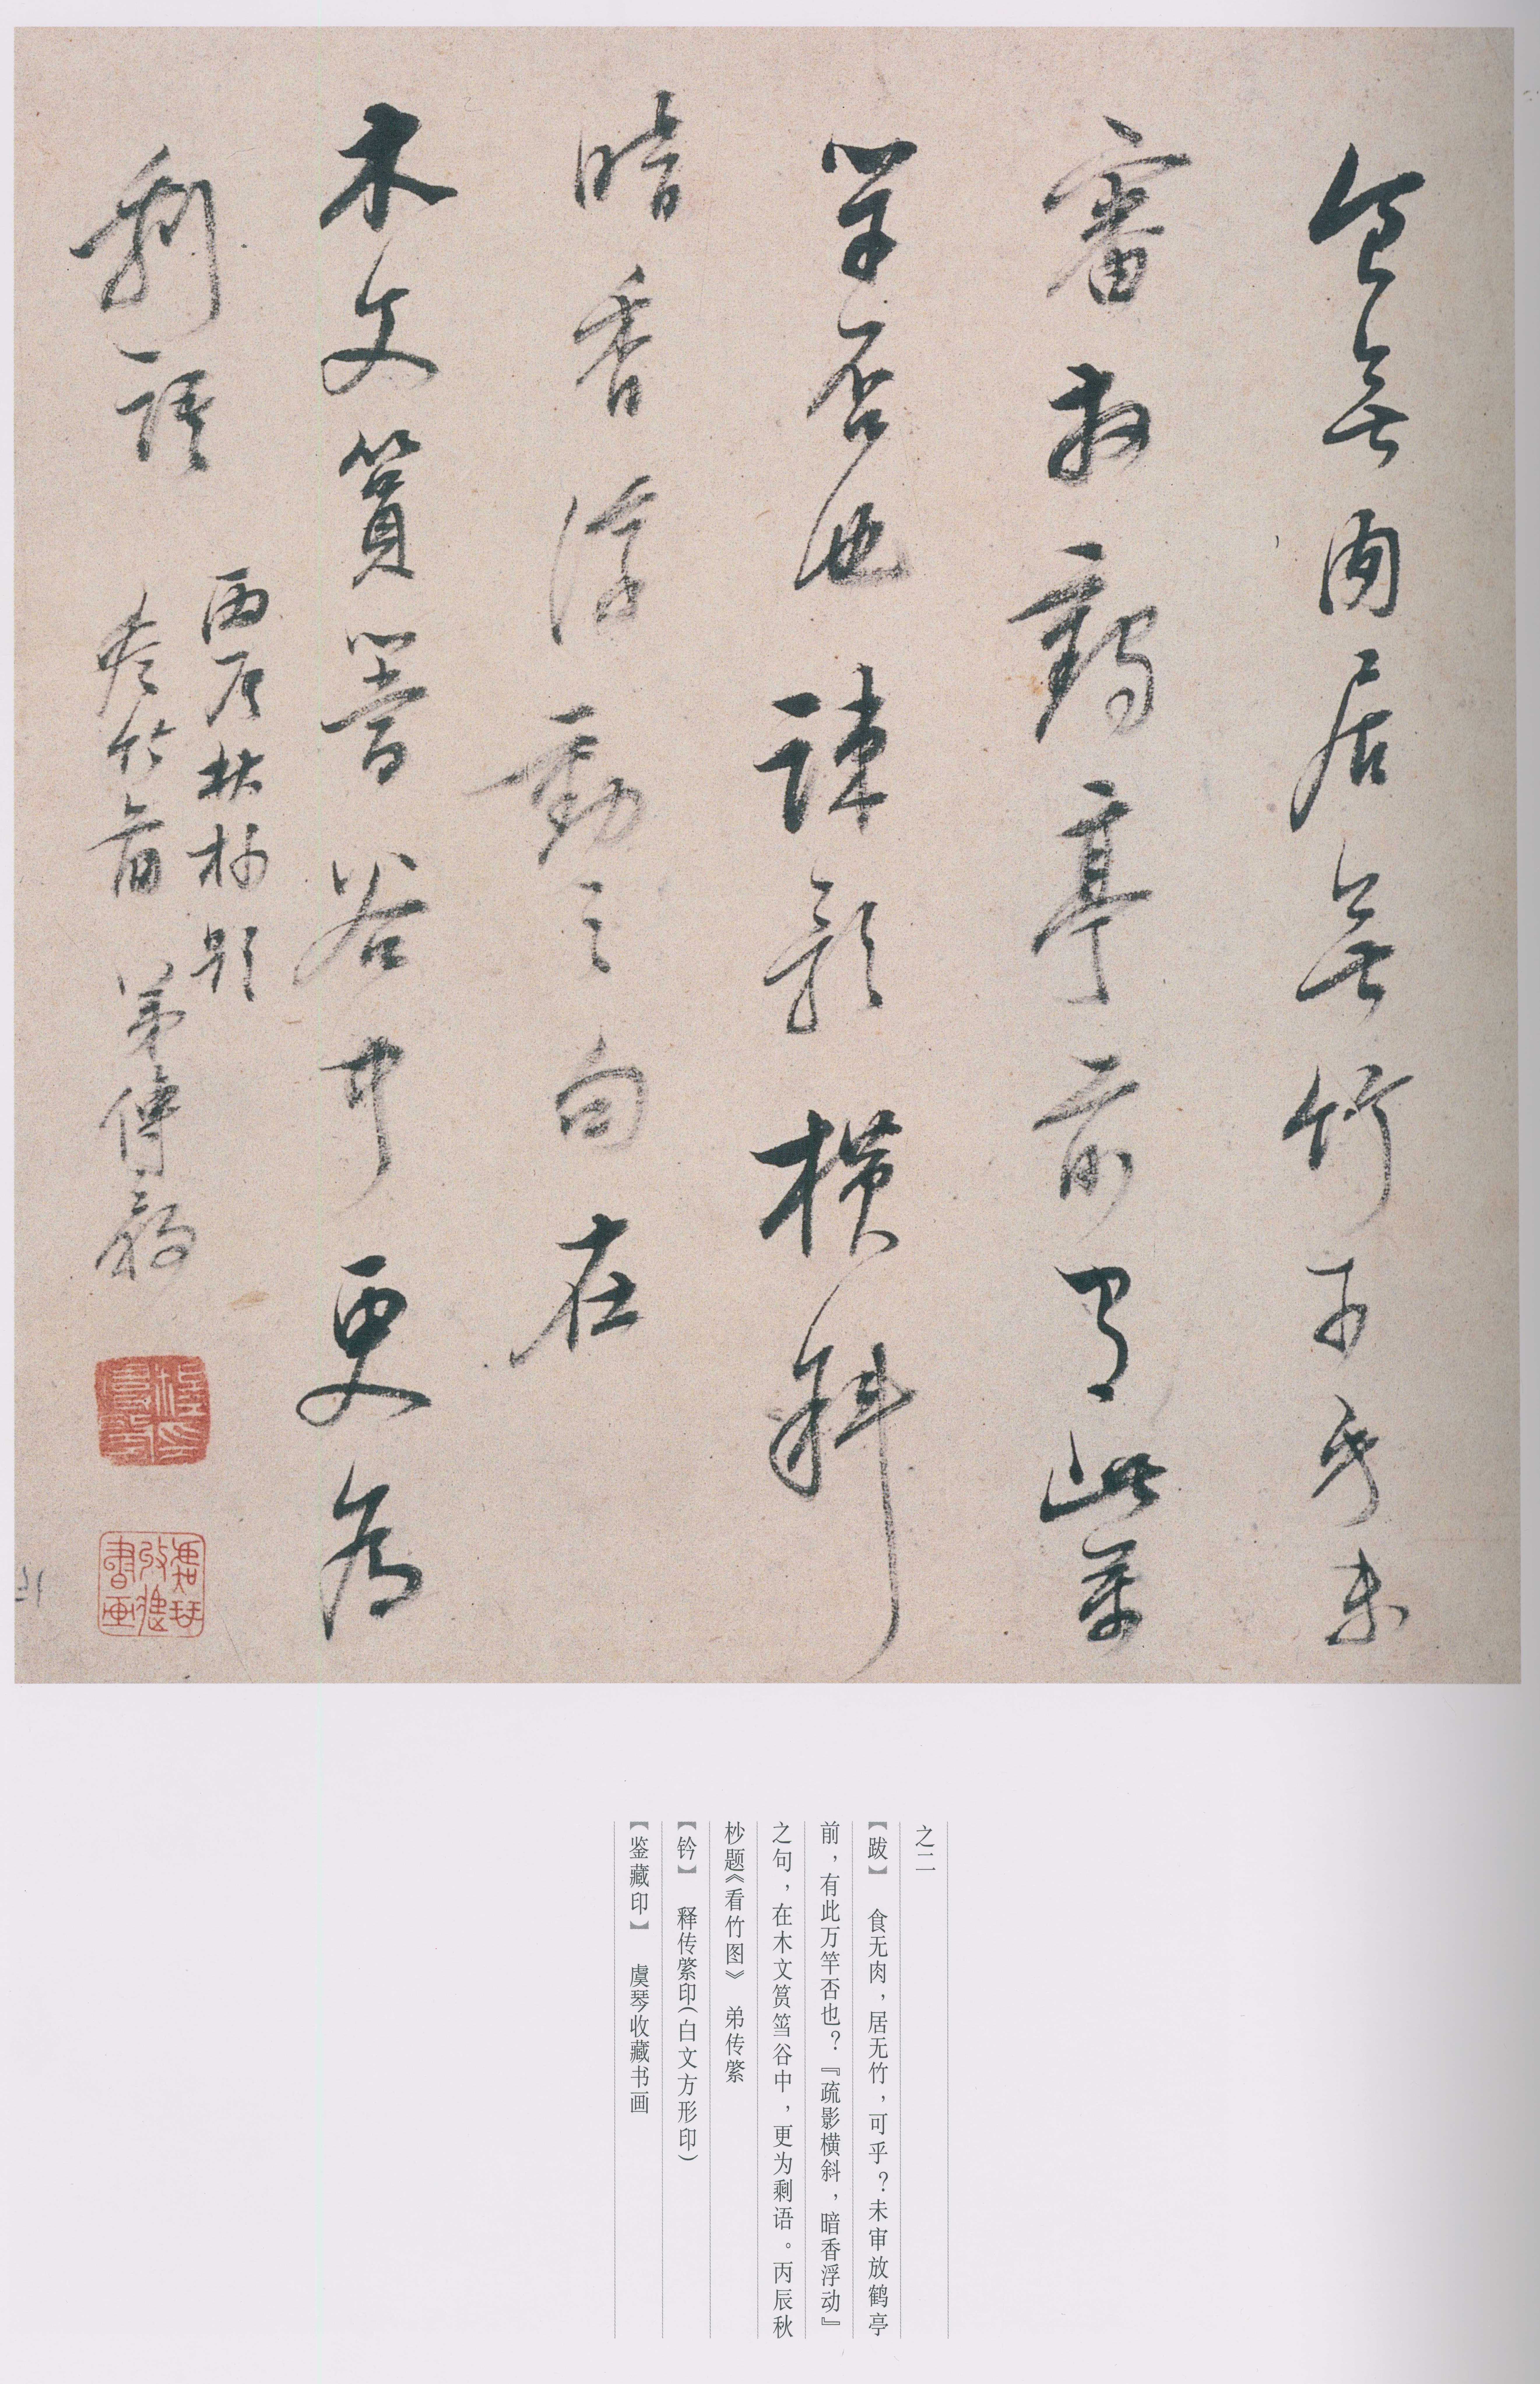 食無肉居無竹可乎未
審放鶴亭前有此萬
竿否也疎影橫斜
暗香浮動之句在
木文篔簹谷中更為
剩語
丙辰秋杪題
看竹圖 弟傳綮
虞琴收藏書画
之二
【跋】 食无肉，居无竹，可乎？未审放鹤亭
前，有此万竿否也？『疏影横斜，暗香浮动』
之句，在木文筼筜谷中，更为剩语。丙辰秋
杪题《看竹图》 弟传綮
【钤】 释传綮印（白文方形印）
【鉴藏印】 虞琴收藏书画